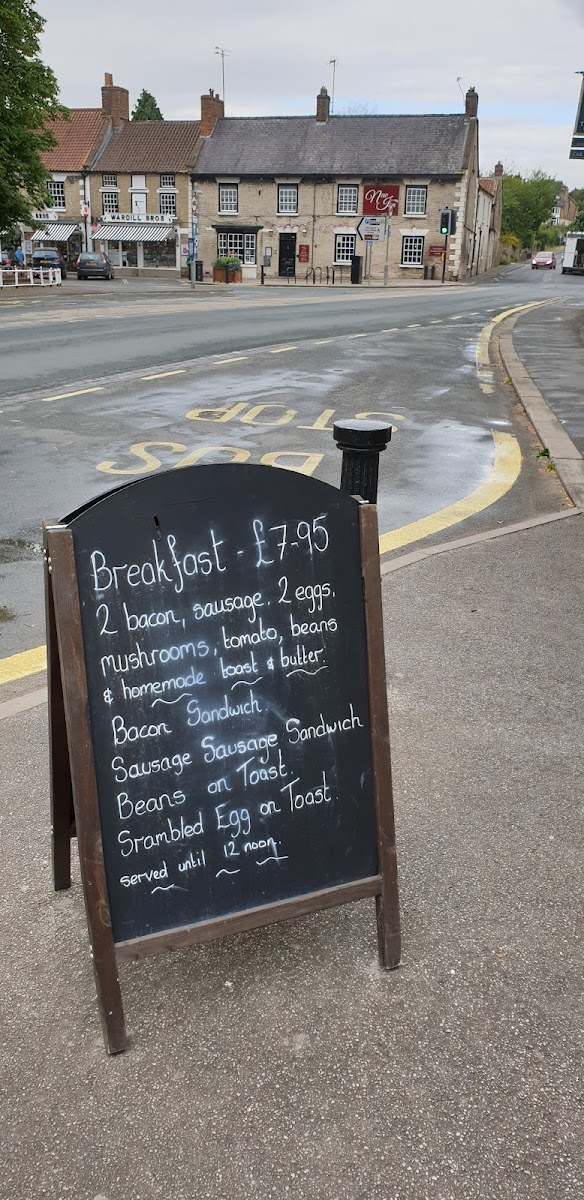 WARDILL BROS
New Inn
BUS
STOP
Breakfast - £7-95
2 bacon, sausage, 2 eggs,
mushrooms, tomato, beans
& homemade toast & butter.
Bacon Sandwich.
Sausage Sausage Sandwich
Beans on Toast.
Srambled Egg on Toast.
served until 12 noon.